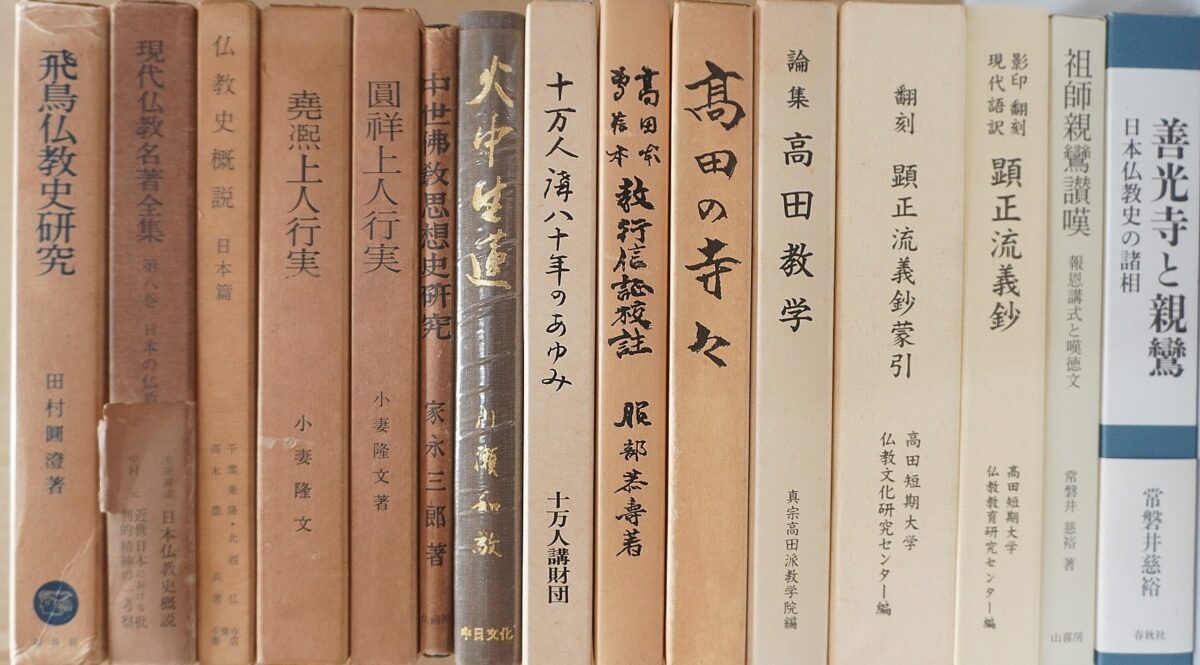 飛鳥仏教史研究
田村圓澄著
現代仏教名著全集
第八巻 日本の仏教
日本仏教史概説
中村 元
近世日本における批
判的精神の一考察
仏教史概説 日本篇
千葉乗隆・北西 弘
高木 豊 共著
堯凞上人行実
小妻隆文
圓祥上人行実
小妻隆文著
中世佛教思想史研究
家永三郎著
火中生蓮
川瀬和敬
中日文化
十万人講八十年のあゆみ
十万人講財団
高田本
専修寺本
教行信証校註
服部恭壽著
高田の寺々
論集 高田教学
真宗高田派教学院編
翻刻 顕正流義鈔蒙引
高田短期大学
仏教文化研究センター編
影印 翻刻
現代語訳
顕正流義鈔
高田短期大学
仏教教育研究センター編
祖師親鸞讃嘆
報恩講式と嘆徳文
常磐井 慈裕 著
山喜房
善光寺と親鸞
日本仏教史の諸相
常磐井慈裕
春秋社